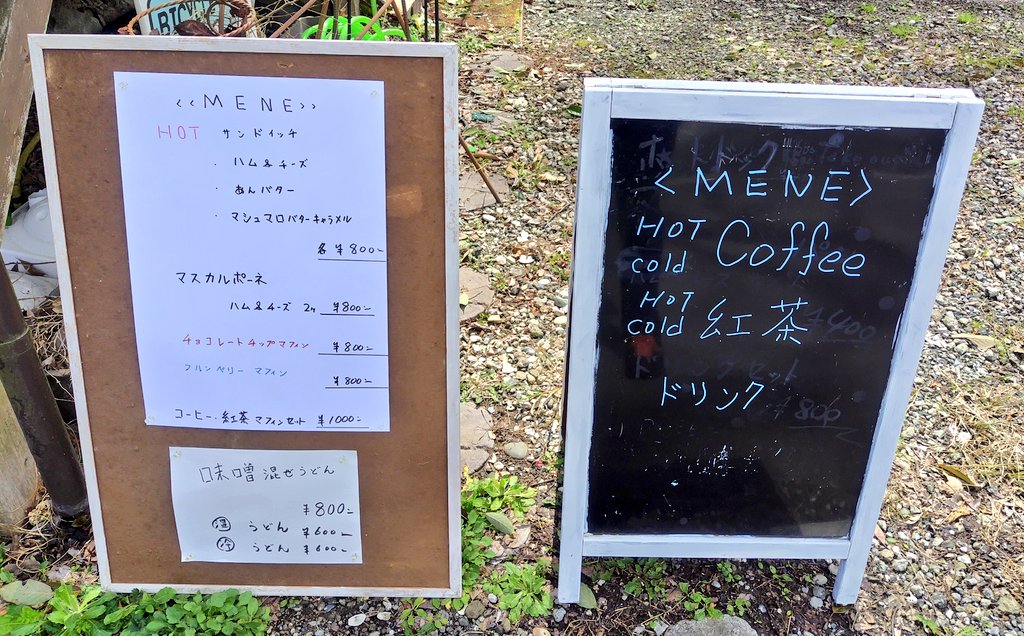 BICYCLE
<<MENE>>
HOT サンドイッチ
・ハム&チーズ
・あんバター
・マシュマロバターキャラメル
各 ¥800-
マスカルポーネ
ハム&チーズ 2ケ ¥800-
チョコレートチップマフィン ¥800-
ブルンベリー マフィン ¥800-
コーヒー・紅茶 マフィンセット ¥1000-
味噌混ぜうどん
¥800-
温 うどん ¥600-
冷 うどん ¥600-
ホットドック
<MENE>
HOT
cold Coffee
HOT
cold 紅茶
¥400
ドリンクセット
ドリンク
¥800